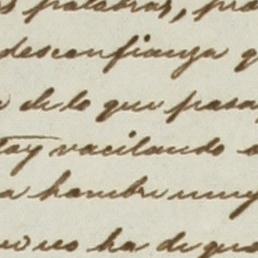 palabras,
desconfianza
de lo que pasa
vacilando
hambre muy
ha de que